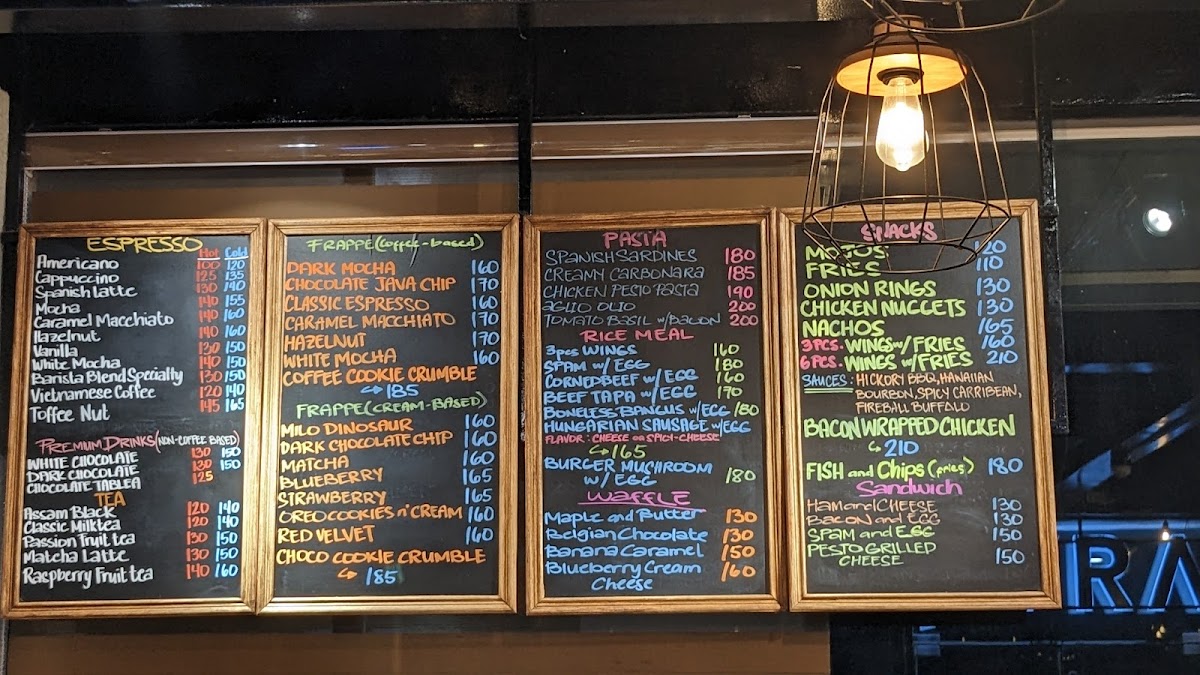 ESPRESSO
Hot Cold
Americano 100 120
Cappuccino 125 135
Spanish Latte 130 140
Mocha 140 155
Caramel Macchiato 140 160
Hazelnut 140 160
Vanilla 130 150
White Mocha 140 150
Barista Blend Specialty 130 150
Vietnamese Coffee 120 140
Toffee Nut 145 165
PREMIUM DRINKS (NON-COFFEE BASED)
WHITE CHOCOLATE 130 150
DARK CHOCOLATE 130 150
CHOCOLATE TABLEA 125
TEA
Assam Black 120 140
Classic Milktea 120 140
Passion Fruit tea 130 150
Matcha Latte 130 150
Raspberry Fruit tea 140 160
FRAPPE (Coffee-based)
DARK MOCHA 160
CHOCOLATE JAVA CHIP 170
CLASSIC ESPRESSO 160
CARAMEL MACCHIATO 170
HAZELNUT 170
WHITE MOCHA 160
COFFEE COOKIE CRUMBLE
↳ 185
FRAPPE (CREAM-BASED)
MILO DINOSAUR 160
DARK CHOCOLATE CHIP 160
MATCHA 160
BLUEBERRY 165
STRAWBERRY 165
OREO COOKIES n' CREAM 160
RED VELVET 160
CHOCO COOKIE CRUMBLE
↳ 185
PASTA
SPANISH SARDINES 180
CREAMY CARBONARA 185
CHICKEN PESTO PASTA 190
AGLIO OLIO 200
TOMATO BASIL w/BACON 200
RICE MEAL
3pcs WINGS 160
SPAM w/ EGG 180
CORNEDBEEF w/ EGG 160
BEEF TAPA w/ EGG 170
BONELESS BANGUS w/ EGG 180
HUNGARIAN SAUSAGE w/EGG
FLAVOR: CHEESE or SPICY-CHEESE
↳ 165
BURGER MUSHROOM
w/ EGG 180
WAFFLE
Maple and Butter 130
Belgian Chocolate 130
Banana Caramel 150
Blueberry Cream 160
Cheese
SNACKS
MOJOS 120
FRIES 110
ONION RINGS 130
CHICKEN NUGGETS 130
NACHOS 165
3 PCS. WINGS w/ FRIES 160
6 PCS. WINGS w/ FRIES 210
SAUCES: HICKORY BBQ, HAWAIIAN
BOURBON, SPICY CARRIBEAN,
FIREBALL BUFFALO
BACON WRAPPED CHICKEN
↳ 210
FISH and Chips (fries) 180
Sandwich
HAM and CHEESE 130
BACON and EGG 130
SPAM and EGG 150
PESTO GRILLED
CHEESE 150